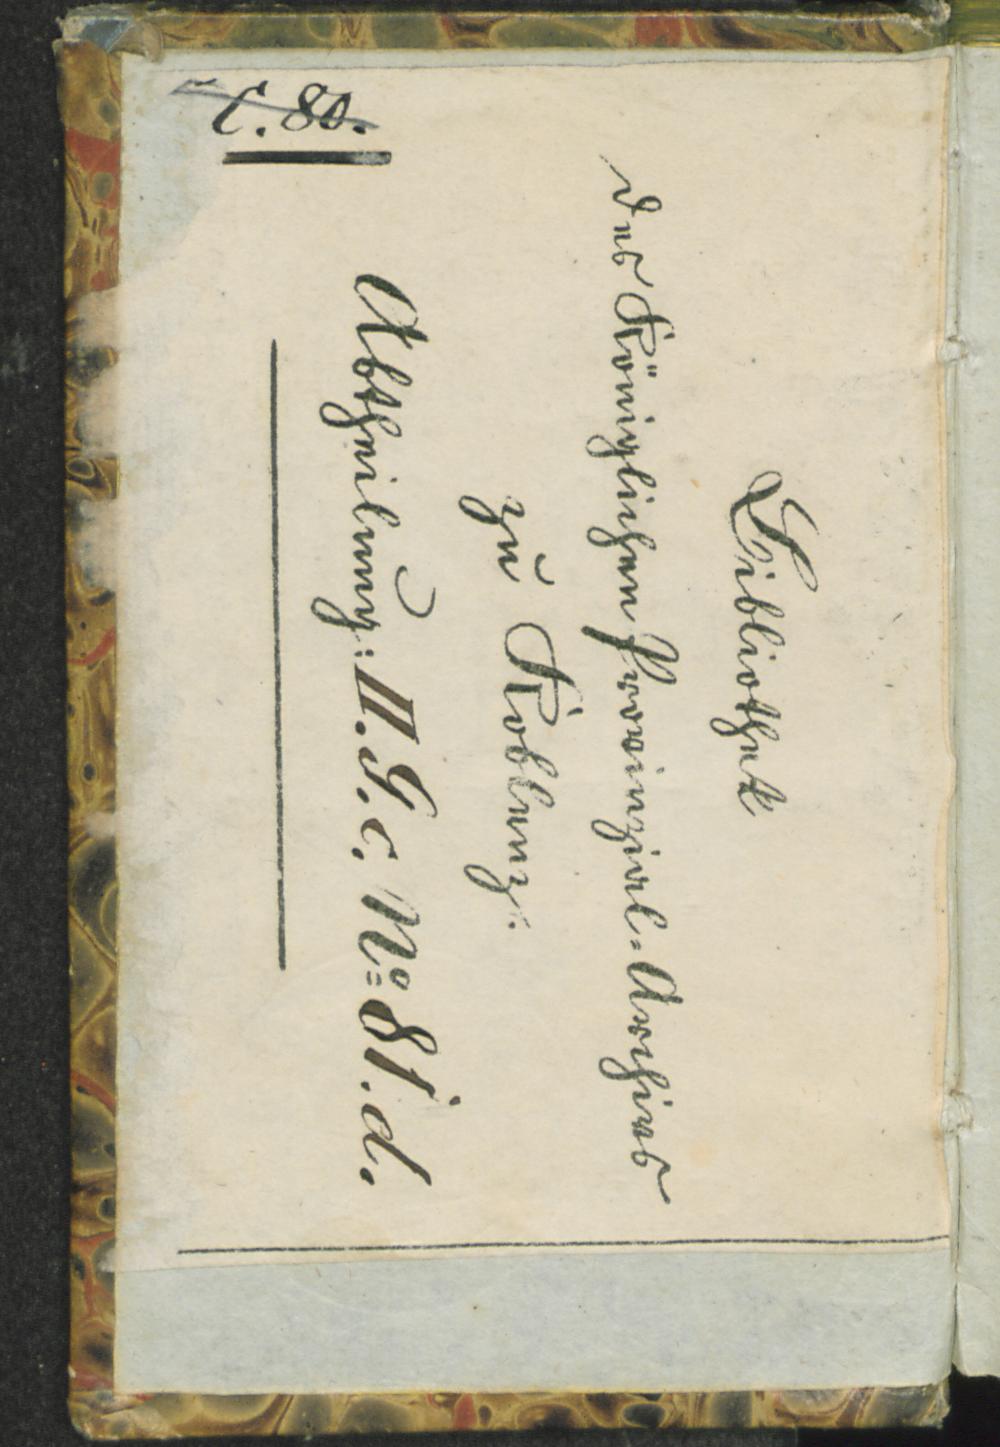 C. 80.
Bibliothek
des Königlichen Provinzial-Archives
zu Koblenz.
Abtheilung: II. G. c. No 81. d.